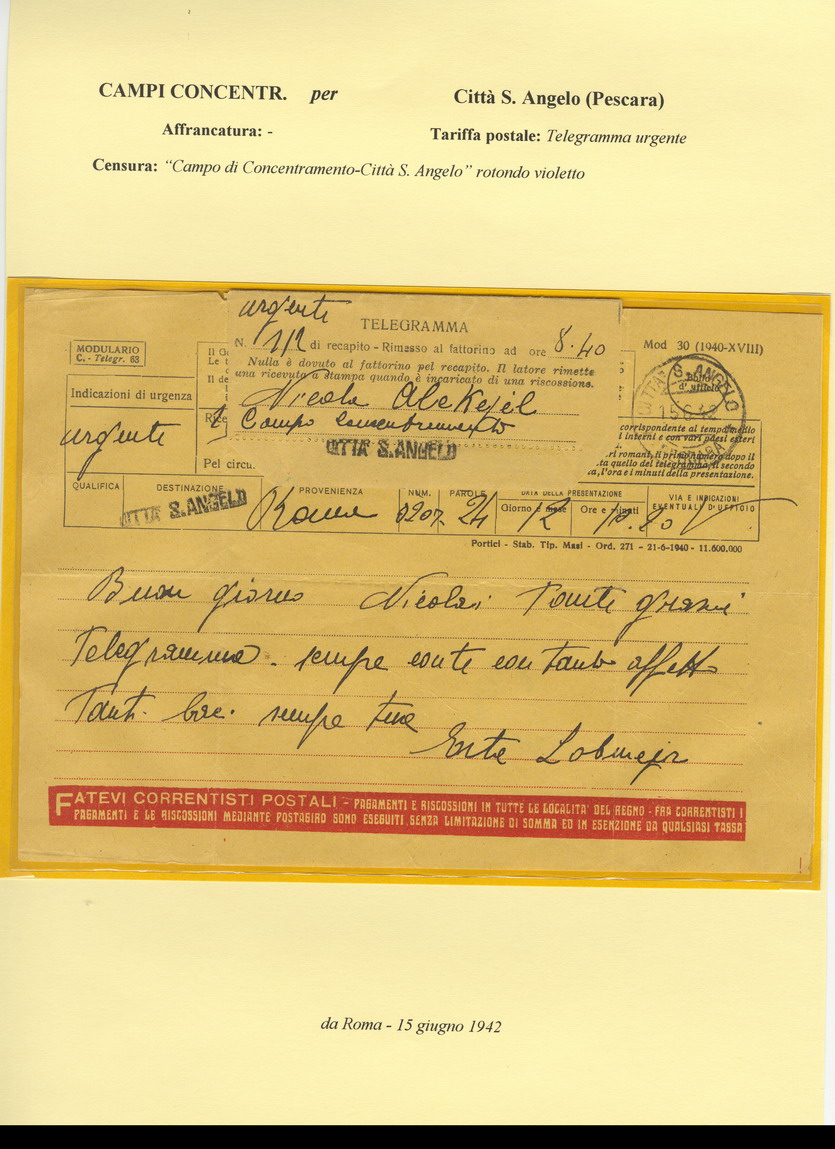 CAMPI CONCENTR. per Città S. Angelo (Pescara)
Affrancatura: - Tariffa postale: Telegramma urgente
Censura: “Campo di Concentramento-Città S. Angelo” rotondo violetto
urgente
TELEGRAMMA
N. 1/2 di recapito - Rimesso al fattorino ad ore 8.40
Nulla è dovuto al fattorino pel recapito. Il latore rimette
una ricevuta a stampa quando è incaricato di una riscossione.
Nicola
Campo
CITTÀ S. ANGELO
MODULARIO
C. - Telegr. 63
Mod 30 (1940-XVIII)
CITTA' S. ANGELO
15.6.42
Indicazioni di urgenza
urgente
Pel circu.
corrispondente al tempo medio
i interni e con vari paesi esteri
ri romani, il primo numero dopo il
ta quello del telegramma, il secondo
a, l'ora e i minuti della presentazione.
QUALIFICA DESTINAZIONE PROVENIENZA NUM. PAROLE DATA DELLA PRESENTAZIONE VIA E INDICAZIONI
Giorno e mese Ore e minuti EVENTUALI D'UFFICIO
CITTÀ S. ANGELO Roma 0207 24 12
Portici - Stab. Tip. Masi - Ord. 271 - 21-6-1940 - 11.600.000
Buon giorno Nicolai
Telegramma. sempre con te con tanto affetto
Tanti baci sempre tua
Lobmejr
FATEVI CORRENTISTI POSTALI - PAGAMENTI E RISCOSSIONI IN TUTTE LE LOCALITA' DEL REGNO - FRA CORRENTISTI I
PAGAMENTI E LE RISCOSSIONI MEDIANTE POSTAGIRO SONO ESEGUITI SENZA LIMITAZIONE DI SOMMA ED IN ESENZIONE DA QUALSIASI TASSA
da Roma - 15 giugno 1942